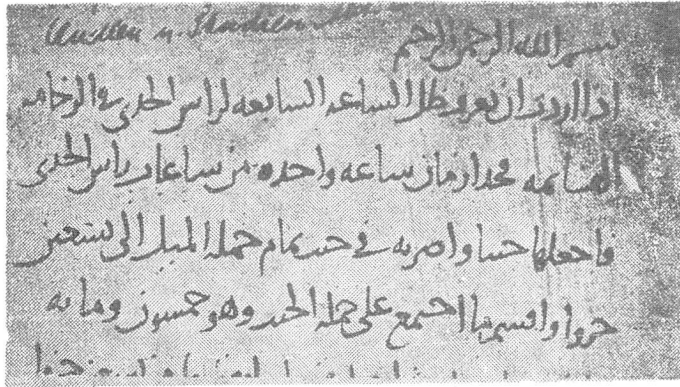 بسم الله الرحمن الرحيم
اذا اردت ان تعرف ظل الساعه السابعه لراس الجدى فى الرخامه
القايمه فخذ ازمان ساعه واحده من ساعات راس الجدى
فاجعلها جيبا واضربه فى جيب تمام جمله الميل الى تسعين
جزوا واقسم ما اجتمع على جمله الجيب وهو خمسون ومايه